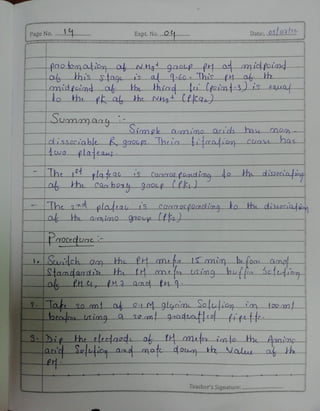 Page No. 19
Expt. No. 04
Date:
protonation of NH3+ group PH at midpoint
of this stage is at 9.60. This PH of the
midpoint of the third (point-3) is equal
to the PK of the NH3+ (PKa2)
Summary :-
Simple amino acids has non-
dissociable R groups Their titration curve has
two plateaus
- The 1st plateau is corresponding to the dissociation
of the carboxy group (PK1)
- The 2nd plateau is corresponding to the dissociation
of the amino group (PK2)
Procedure :-
1. Switch on the PH meter 15 min before and
Standardize the PH meter using buffer Solution
of PH 4, PH 7 and PH 9.
2. Take 20 ml of 0.1 M glycine Solution in 100 ml
beaker using a 20 ml graduated pipette.
3. Dip the electrode of PH meter into the Amino
acid Solution and note down the value of the
PH.
Teacher's Signature: